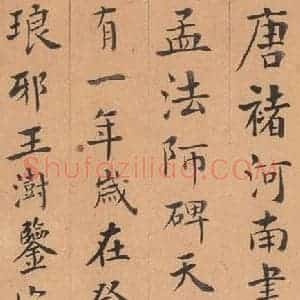 唐褚河南書
孟法師碑天
有一年歲在癸
琅邪王澍鑒
Shufaziliao.COM